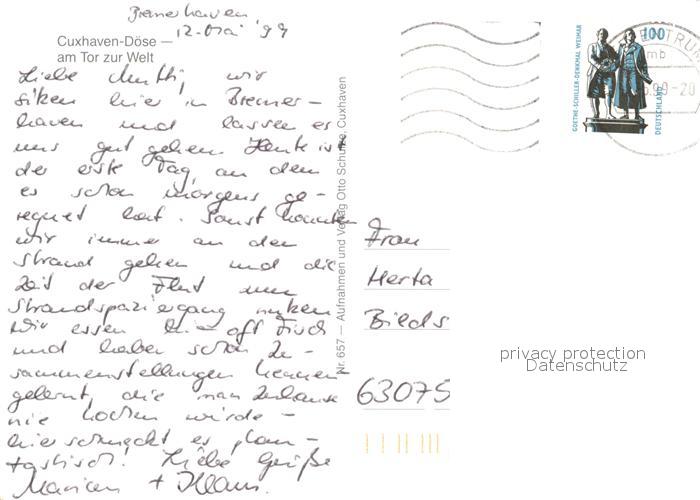 Bremerhaven
12. Mai '99
Cuxhaven-Döse —
am Tor zur Welt
Liebe Mutti, wir
sitzen hier in Bremer-
haven und lassen es
uns gut gehen. Heute ist
der erste Tag, an dem
es schon morgens ge-
regnet hat. Sonst konnten
wir immer an den
Strand gehen und die
Zeit der Flut zum
Strandspaziergang nutzen.
Wir essen hier oft Fisch
und haben schon Zu-
sammenstellungen kennen-
gelernt, die man Zuhause
nie kochen würde -
hier schmeckt es phan-
tastisch! Liebe Grüße
Marion + Klaus.
Nr. 657 — Aufnahmen und Verlag Otto Schulze, Cuxhaven
Frau
Herta
63075
GOETHE-SCHILLER-DENKMAL WEIMAR
100
DEUTSCHLAND
privacy protection
Datenschutz